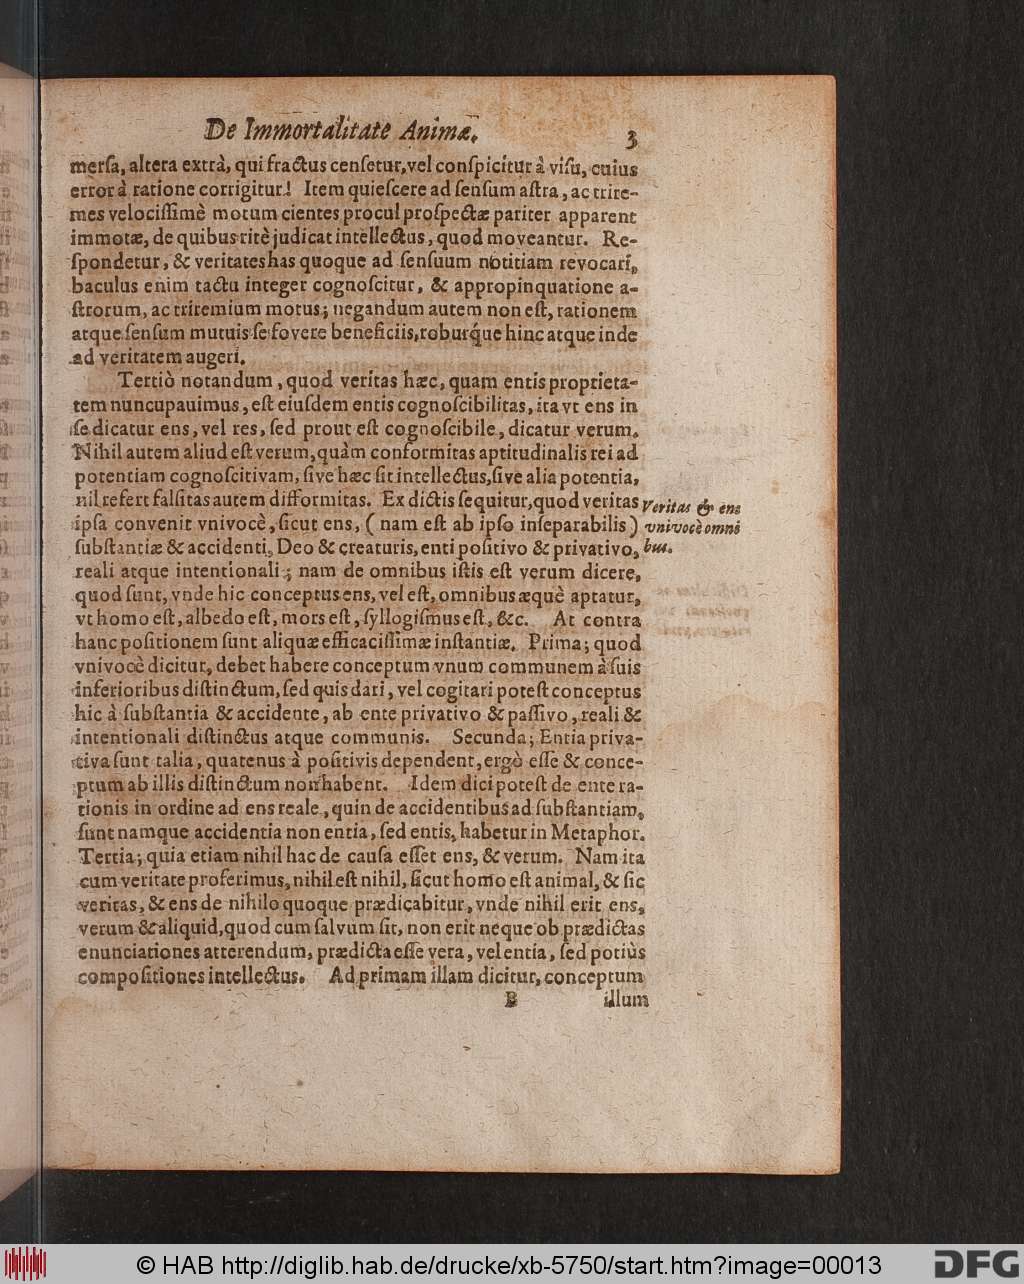 De Immortalitate Animæ.
3
merſa, altera extrà, qui fractus cenſetur, vel conſpicitur à viſu, cuius
error à ratione corrigitur! Item quieſcere ad ſenſum aſtra, ac trire-
mes velociſſimè motum cientes procul proſpectæ pariter apparent
immotæ, de quibus ritè judicat intellectus, quod moveantur. Re-
ſpondetur, & veritates has quoque ad ſenſuum notitiam revocari,
baculus enim tactu integer cognoſcitur, & appropinquatione a-
ſtrorum, ac triremium motus; negandum autem non eſt, rationem
atque ſenſum mutuis ſe fovere beneficiis, roburq́ue hinc atque inde
ad veritatem augeri.
Tertiò notandum, quod veritas hæc, quam entis proprieta-
tem nuncupauimus, eſt eiuſdem entis cognoſcibilitas, ita vt ens in
ſe dicatur ens, vel res, ſed prout eſt cognoſcibile, dicatur verum.
Nihil autem aliud eſt verum, quàm conformitas aptitudinalis rei ad
potentiam cognoſcitivam, ſive hæc ſit intellectus, ſive alia potentia,
nil refert falſitas autem difformitas. Ex dictis ſequitur, quod veritas
ipſa convenit vnivocè, ſicut ens, (nam eſt ab ipſo inſeparabilis)
ſubſtantiæ & accidenti, Deo & creaturis, enti poſitivo & privativo,
reali atque intentionali; nam de omnibus iſtis eſt verum dicere,
quod ſunt, vnde hic conceptus ens, vel eſt, omnibus æquè aptatur,
vt homo eſt, albedo eſt, mors eſt, ſyllogiſmus eſt, &c. At contra
hanc poſitionem ſunt aliquæ efficaciſſimæ inſtantiæ. Prima; quod
vnivocè dicitur, debet habere conceptum vnum communem à ſuis
inferioribus diſtinctum, ſed quis dari, vel cogitari poteſt conceptus
hic à ſubſtantia & accidente, ab ente privativo & paſſivo, reali &
intentionali diſtinctus atque communis. Secunda; Entia priva-
tiva ſunt talia, quatenus à poſitivis dependent, ergò eſſe & conce-
ptum ab illis diſtinctum non habent. Idem dici poteſt de ente ra-
tionis in ordine ad ens reale, quin de accidentibus ad ſubſtantiam,
ſunt namque accidentia non entia, ſed entis, habetur in Metaphor.
Tertia; quia etiam nihil hac de cauſa eſſet ens, & verum. Nam ita
cum veritate proferimus, nihil eſt nihil, ſicut homo eſt animal, & ſic
veritas, & ens de nihilo quoque prædicabitur, vnde nihil erit ens,
verum & aliquid, quod cum ſalvum ſit, non erit neque ob prædictas
enunciationes atterendum, prædicta eſſe vera, vel entia, ſed potiùs
compoſitiones intellectus. Ad primam illam dicitur, conceptum
B
illum
Veritas & ens
vnivocè omni
bus.
© HAB http://diglib.hab.de/drucke/xb-5750/start.htm?image=00013
DFG